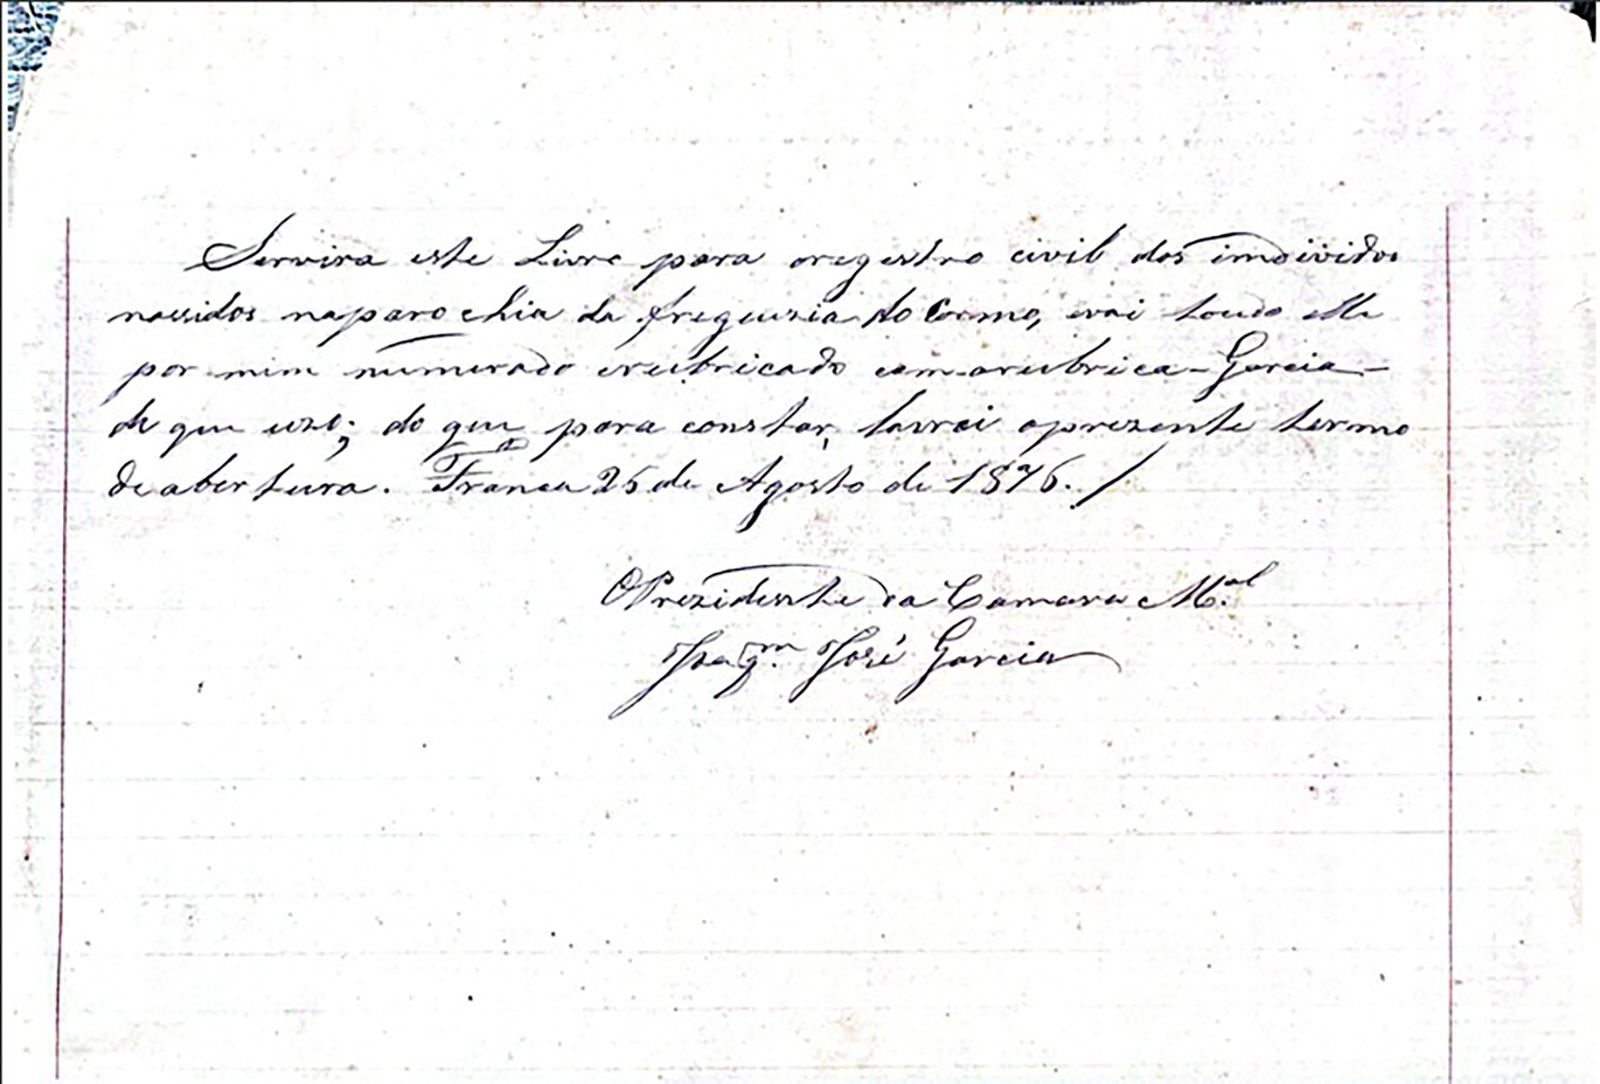 Servira este Livro para oregestro civil dos individos
nassidos naparochia da freguezia do Carmo, vai toudo elle
por mim numerado erubricado com arubrica - Garcia -
de que uzo; do que para constar, lavrei oprezente termo
de abertura. Franca 25 de Agosto de 1876. /
OPrezidente da Camara M.al
Joaqm. José Garcia